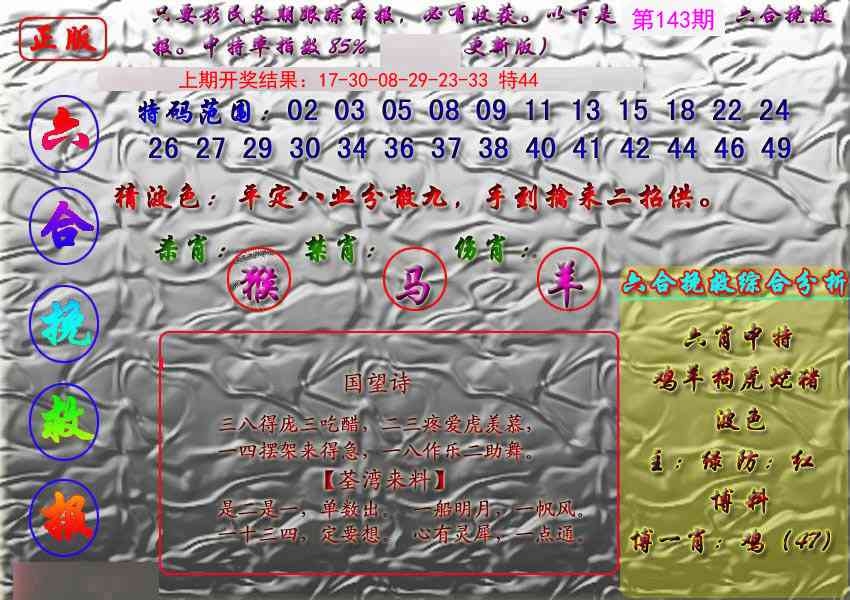 正版
只要彩民长期跟踪本报,必有收获。以下是 第143期 六合挽救
报。中特率指数85% 更新版)
上期开奖结果:17-30-08-29-23-33 特44
特码范围:02 03 05 08 09 11 13 15 18 22 24
26 27 29 30 34 36 37 38 40 41 42 44 46 49
猜波色:平定八业分散九,手到擒来二招供。
杀肖:猴 禁肖:马 伤肖:羊
六合挽救报
国望诗
三八得庞三吃醋,二三疼爱虎羡慕,
一四摆架来得急,一八作乐二助舞。
【荃湾来料】
是二是一,单数出。 一船明月,一帆风。
一十三四,定要想。 心有灵犀,一点通。
六合挽救综合分析
六肖中特
鸡羊狗虎蛇猪
波色
主:绿防:红
博料
博一肖:鸡(47)